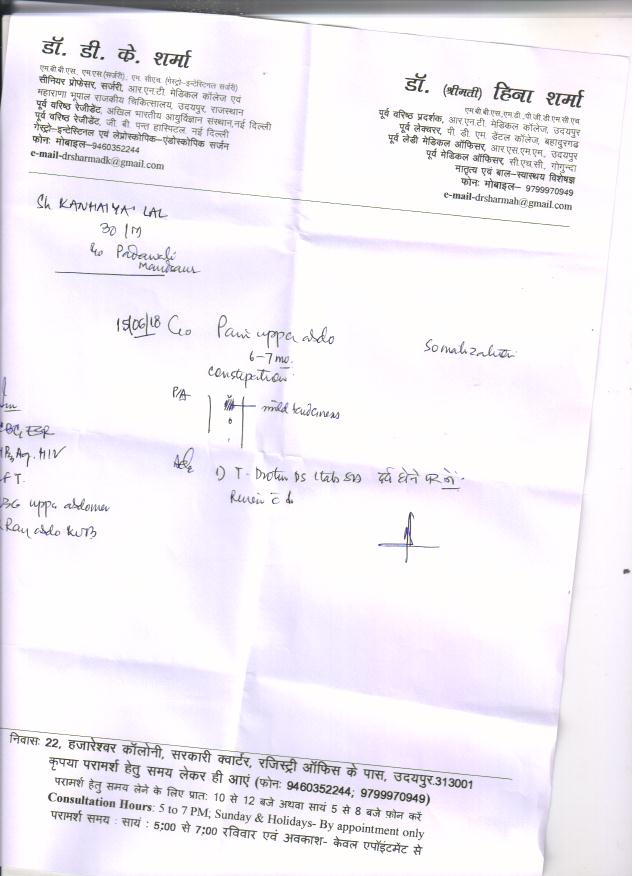 डॉ. डी. के. शर्मा
एम.बी.बी.एस, एम.एस (सर्जरी), एम. सीएच. (गेस्ट्रो-इन्टेस्टिनल सर्जरी)
सीनियर प्रोफेसर, सर्जरी, आर.एन.टी. मेडिकल कॉलेज एवं
महाराणा भूपाल राजकीय चिकित्सालय, उदयपुर, राजस्थान
पूर्व वरिष्ठ रेजीडेंट, अखिल भारतीय आयुर्विज्ञान संस्थान, नई दिल्ली
पूर्व वरिष्ठ रेजीडेंट, जी. बी. पन्त हास्पिटल, नई दिल्ली
गेस्ट्रो-इन्टेस्टिनल एवं लेप्रोस्कोपिक-एंडोस्कोपिक सर्जन
फोन: मोबाइल-9460352244
e-mail-drsharmadk@gmail.com
डॉ. (श्रीमती) हिना शर्मा
एम.बी.बी.एस, एम.डी., पी.जी.डी.एम.सी.एच.
पूर्व वरिष्ठ प्रदर्शक, आर.एन.टी. मेडिकल कॉलेज, उदयपुर
पूर्व लेक्चरर, पी. डी. एम. डेंटल कॉलेज, बहादुरगढ
पूर्व लेडी मेडिकल ऑफिसर, आर.एस.एम.एम., उदयपुर
पूर्व मेडिकल ऑफिसर, सी.एच.सी., गोगुन्दा
मातृत्व एवं बाल-स्वास्थय विशेषज्ञ
फोन: मोबाइल- 9799970949
e-mail-drsharmah@gmail.com
Sh KANHAIYA LAL
30/M
Mandsaur
15/06/18 C/o Pain uppa abdo
6-7 mo.
constipation
P/A mild tenderness
Adv
1) T- Drotin DS 1tab SOS दर्द होने पर लें
Review c̄
CBC, ESR
HIV
FT.
uppa abdomen
Ray abdo KUB
निवास: 22, हजारेश्वर कॉलोनी, सरकारी क्वार्टर, रजिस्ट्री ऑफिस के पास, उदयपुर.313001
कृपया परामर्श हेतु समय लेकर ही आएं (फोन: 9460352244; 9799970949)
परामर्श हेतु समय लेने के लिए प्रात: 10 से 12 बजे अथवा सायं 5 से 8 बजे फ़ोन करें
Consultation Hours: 5 to 7 PM, Sunday & Holidays- By appointment only
परामर्श समय : सायं : 5:00 से 7:00 रविवार एवं अवकाश- केवल एपॉइंटमेंट से